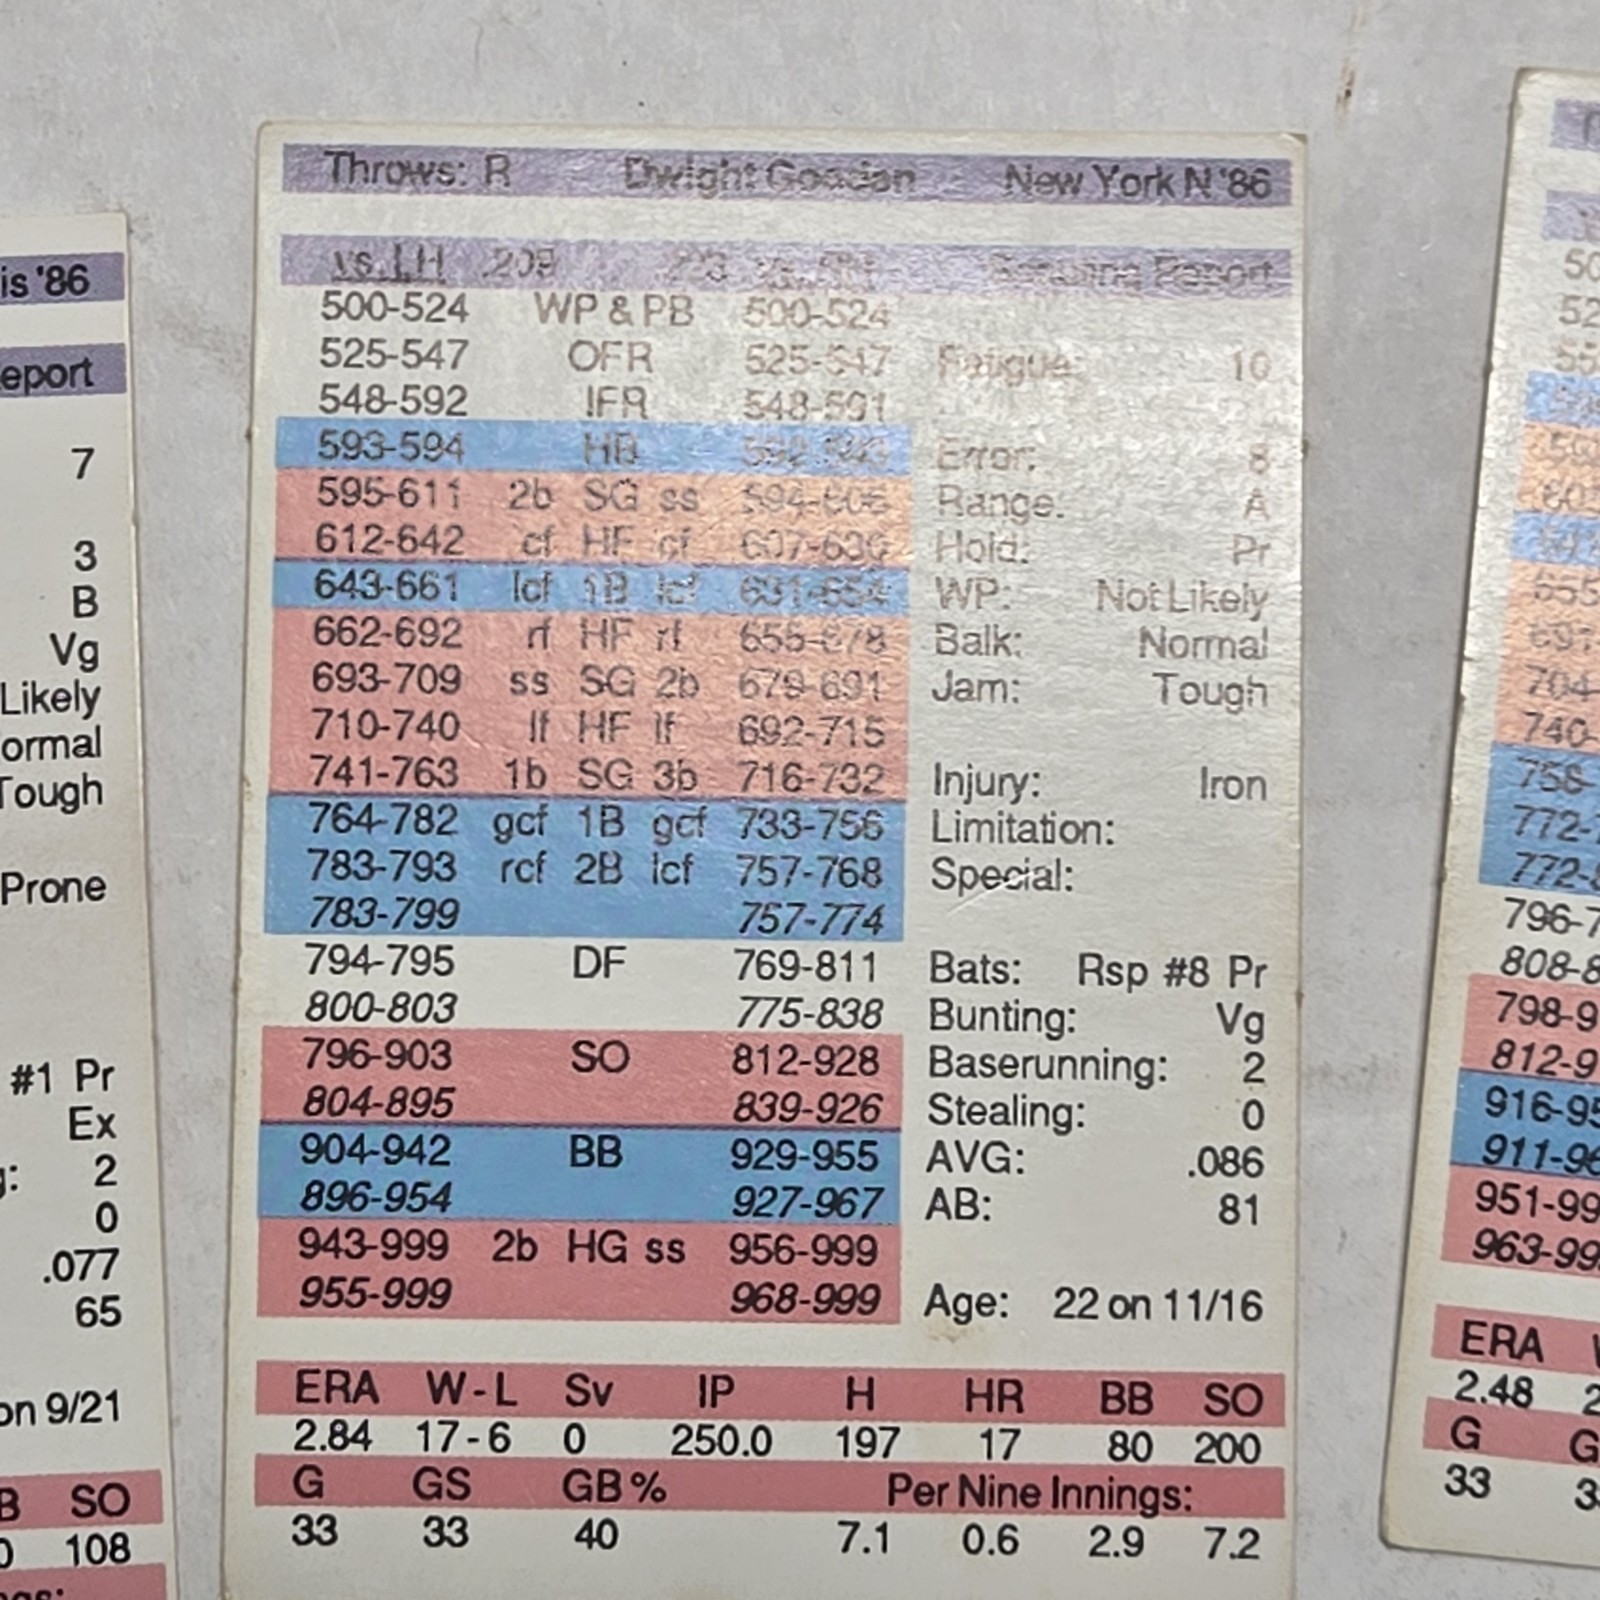 Throws: R Dwight Gooden New York N '86
vs. LH .209 vs. RH Report
500-524 WP & PB 500-524
525-547 OFR 525-547 Fatigue: 10
548-592 IFR 548-591
593-594 HB 592-593 Error: 8
595-611 2b SG ss 594-606 Range: A
612-642 cf HF cf 607-630 Hold: Pr
643-661 lcf 1B lcf 631-654 WP: Not Likely
662-692 rf HF rf 655-678 Balk: Normal
693-709 ss SG 2b 679-691 Jam: Tough
710-740 lf HF lf 692-715
741-763 1b SG 3b 716-732 Injury: Iron
764-782 gcf 1B gcf 733-756 Limitation:
783-793 rcf 2B lcf 757-768 Special:
783-799 757-774
794-795 DF 769-811 Bats: Rsp #8 Pr
800-803 775-838 Bunting: Vg
796-903 SO 812-928 Baserunning: 2
804-895 839-926 Stealing: 0
904-942 BB 929-955 AVG: .086
896-954 927-967 AB: 81
943-999 2b HG ss 956-999
955-999 968-999 Age: 22 on 11/16
ERA W-L Sv IP H HR BB SO
2.84 17-6 0 250.0 197 17 80 200
G GS GB% Per Nine Innings:
33 33 40 7.1 0.6 2.9 7.2
is '86
eport
7
3
B
Vg
Likely
ormal
Tough
Prone
#1 Pr
Ex
: 2
0
.077
65
on 9/21
B SO
0 108
ngs:
796-7
808-8
798-9
812-9
916-95
911-96
951-99
963-99
ERA
2.48 2
G G
33 3